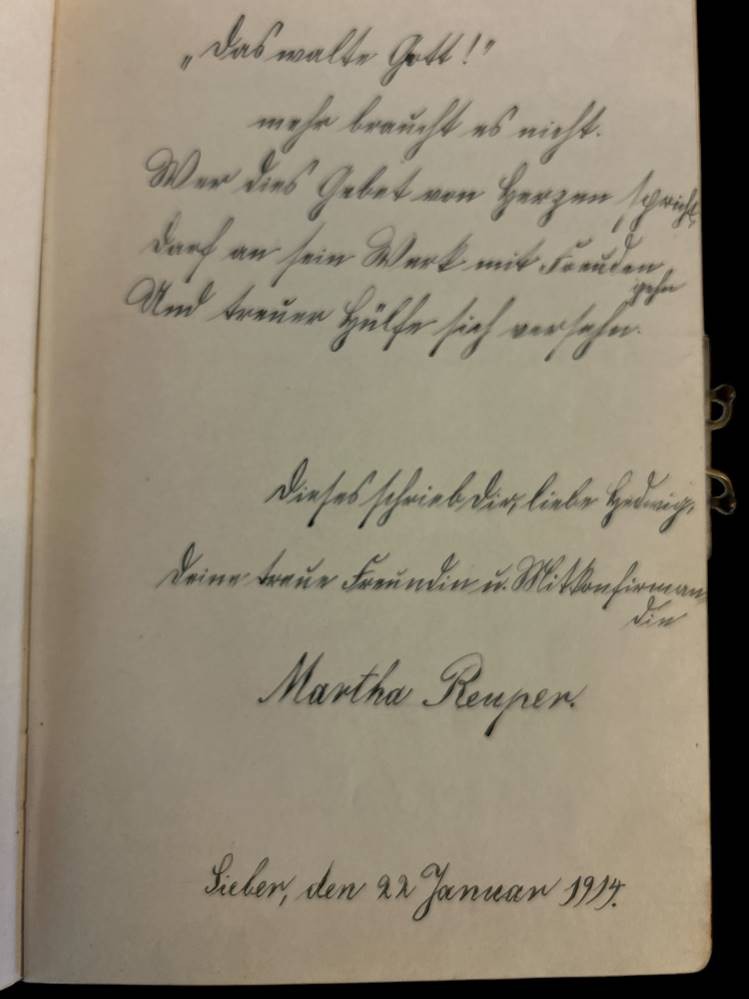 „Das walte Gott!"
mehr braucht es nicht.
Wer dies Gebet von Herzen spricht,
Darf an sein Werk mit Freuden
gehn
Und treuer Hülfe sich versehn.
Dieses schrieb Dir, liebe Hedwig,
Deine treue Freundin u. Mitkonfirman
din
Martha Reuper.
Sieber, den 22 Januar 1914.